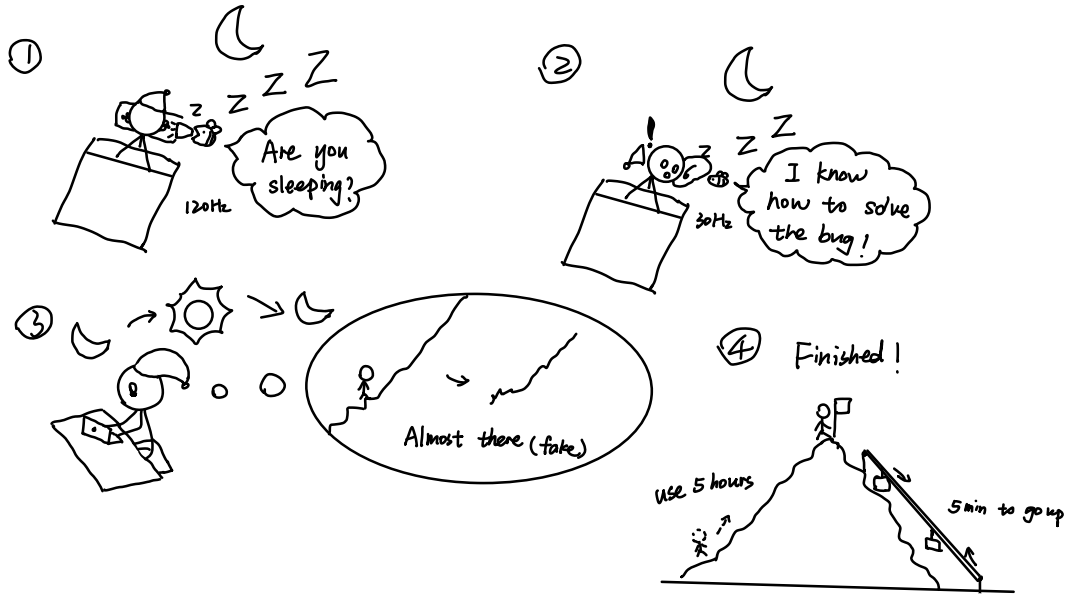 ①
z z z Z
Are you
sleeping?
120Hz
②
!
z z Z
I know
how to solve
the bug!
30Hz
③
Almost there (fake)
④ Finished!
use 5 hours
5 min to go up